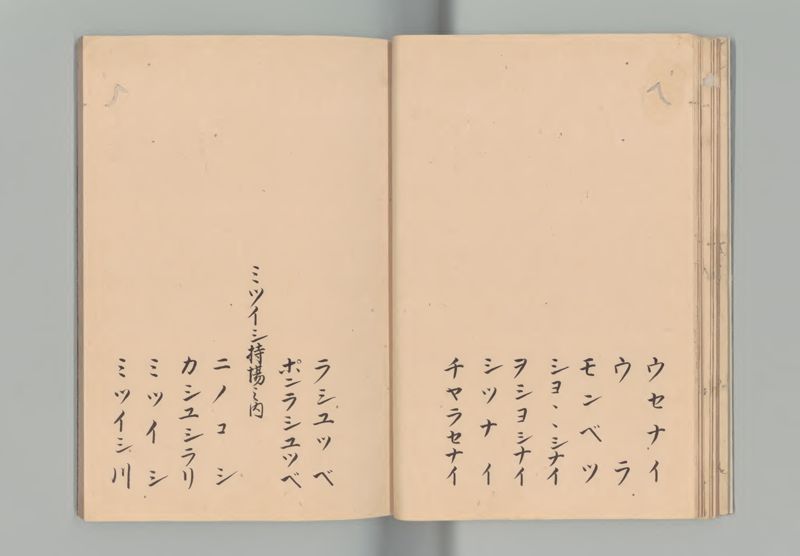 ウセナイ
ウラ
モンベツ
シヨヽシナイ
ヲシヨシナイ
シツナイ
チヤラセナイ
ラシユツベ
ポンラシユツベ
ミツイシ持場之内
ニノコシ
カシユシラリ
ミツイシ
ミツイシ川